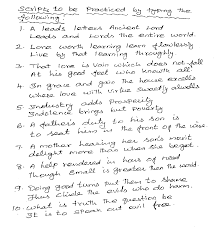 Scripts to be Practiced by typing the
following:
1. A leads letters Ancient Lord
Leads and lords the entire world.
2. Lore worth learning learn flawlessly
Live by that learning thoroughly
3. That lore is vain which does not fall
At his good feet who knoweth all
4. In grace and gain the house excells
where love with virtue sweetly dwells
5. Industry adds Prosperity
Indolence brings but Poverty
6. A fathers duty to his son is
to seat him in the front of the wise
7. A mother hearing her son's merit
delight more than when she begot
8. A help rendered in hour of need
Though small is greater than the world
9. Doing good turns put them to shame
Thus chide the evils who do harm.
10. What is truth the question be
It is to speak out evil free